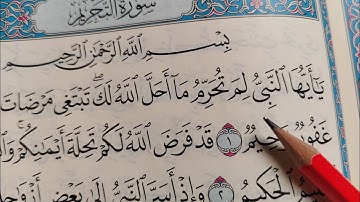 سُورَةُ التَّحْرِيمِ
بِسْمِ اللَّهِ الرَّحْمَٰنِ الرَّحِيمِ
يَا أَيُّهَا النَّبِيُّ لِمَ تُحَرِّمُ مَا أَحَلَّ اللَّهُ لَكَ ۖ تَبْتَغِي مَرْضَاتَ
غَفُورٌ رَحِيمٌ ١ قَدْ فَرَضَ اللَّهُ لَكُمْ تَحِلَّةَ أَيْمَانِكُمْ ۚ
الْحَكِيمُ ٢ وَإِذْ أَسَرَّ النَّبِيُّ إِلَىٰ بَعْضِ